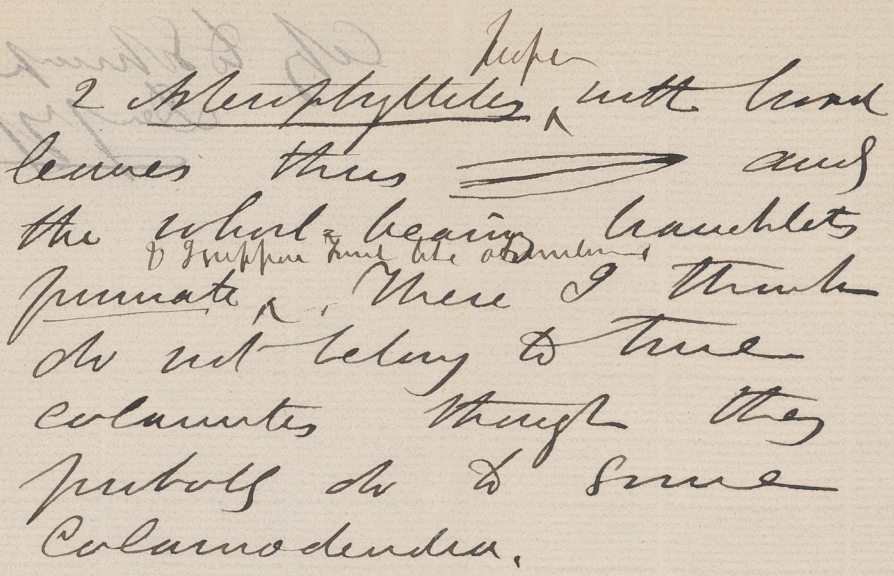 proper
2 Asterophyllites, with broad
leaves thus and
the whorl-bearing branchlets
& I suppose fruit like
pinnate. These I think
do not belong to true
calamites though they
probably do to some
Calamodendra.